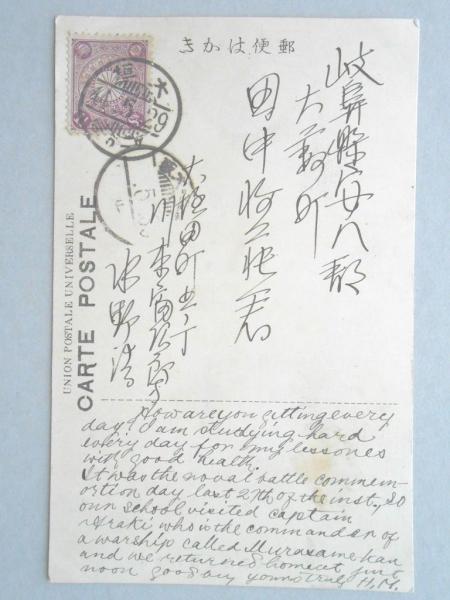 きかは便郵
岐阜縣安八郡
大薮町
田中
君
川本
水野清
UNION POSTALE UNIVERSELLE
CARTE POSTALE
How are you getting every
day. I am studying hard
every day for my lessones
with good health.
It was the noval battle commem-
ortion day last 27th of the inst., so
our school visited captain
Araki who is the commandar of
a warship called Murasame kan
and we returned home at just
noon good by yours truly H.M.